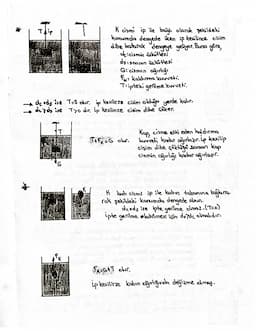 K cismi ip ile bağlı olarak şekildeki
konumda dengede iken ip kesilince cisim
dibe batarak dengeye geliyor. Buna göre,
dc: cismin özkütlesi
ds: sıvının özkütlesi
G: cismin ağırlığı
Fk: kaldırma kuvveti
T: ipteki gerilme kuvveti
T=0 olur. ip kesilince cisim olduğu yerde kalır.
T>0 dır. ip kesilince cisim dibe çöker.
T+Fk=G olur.
Kap
kuvveti kadar ağırlaşır. ip kesilip
cisim dibe çöktüğü zaman kap
cismin ağırlığı kadar ağırlaşır.
K katı cismi ip ile kabın tabanına bağlana-
rak şekildeki konumda dengede olsun.
ise ip gerilme olmaz. (T=0)
İpte gerilme olabilmesi için olmalıdır.
Fk=G+T olur.
ip kesilirse kabın ağırlığında değişme olmaz.